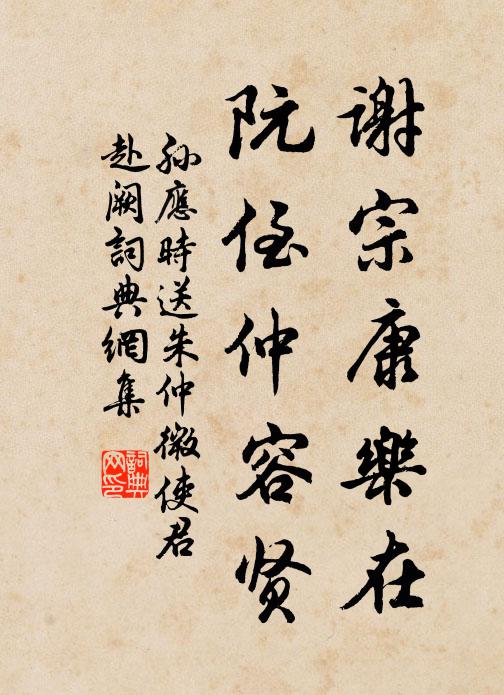 谢宗康樂在
阮侄仲容贤
孫應時送朱仲微使君
赴阙詞典網集
詞典
网印